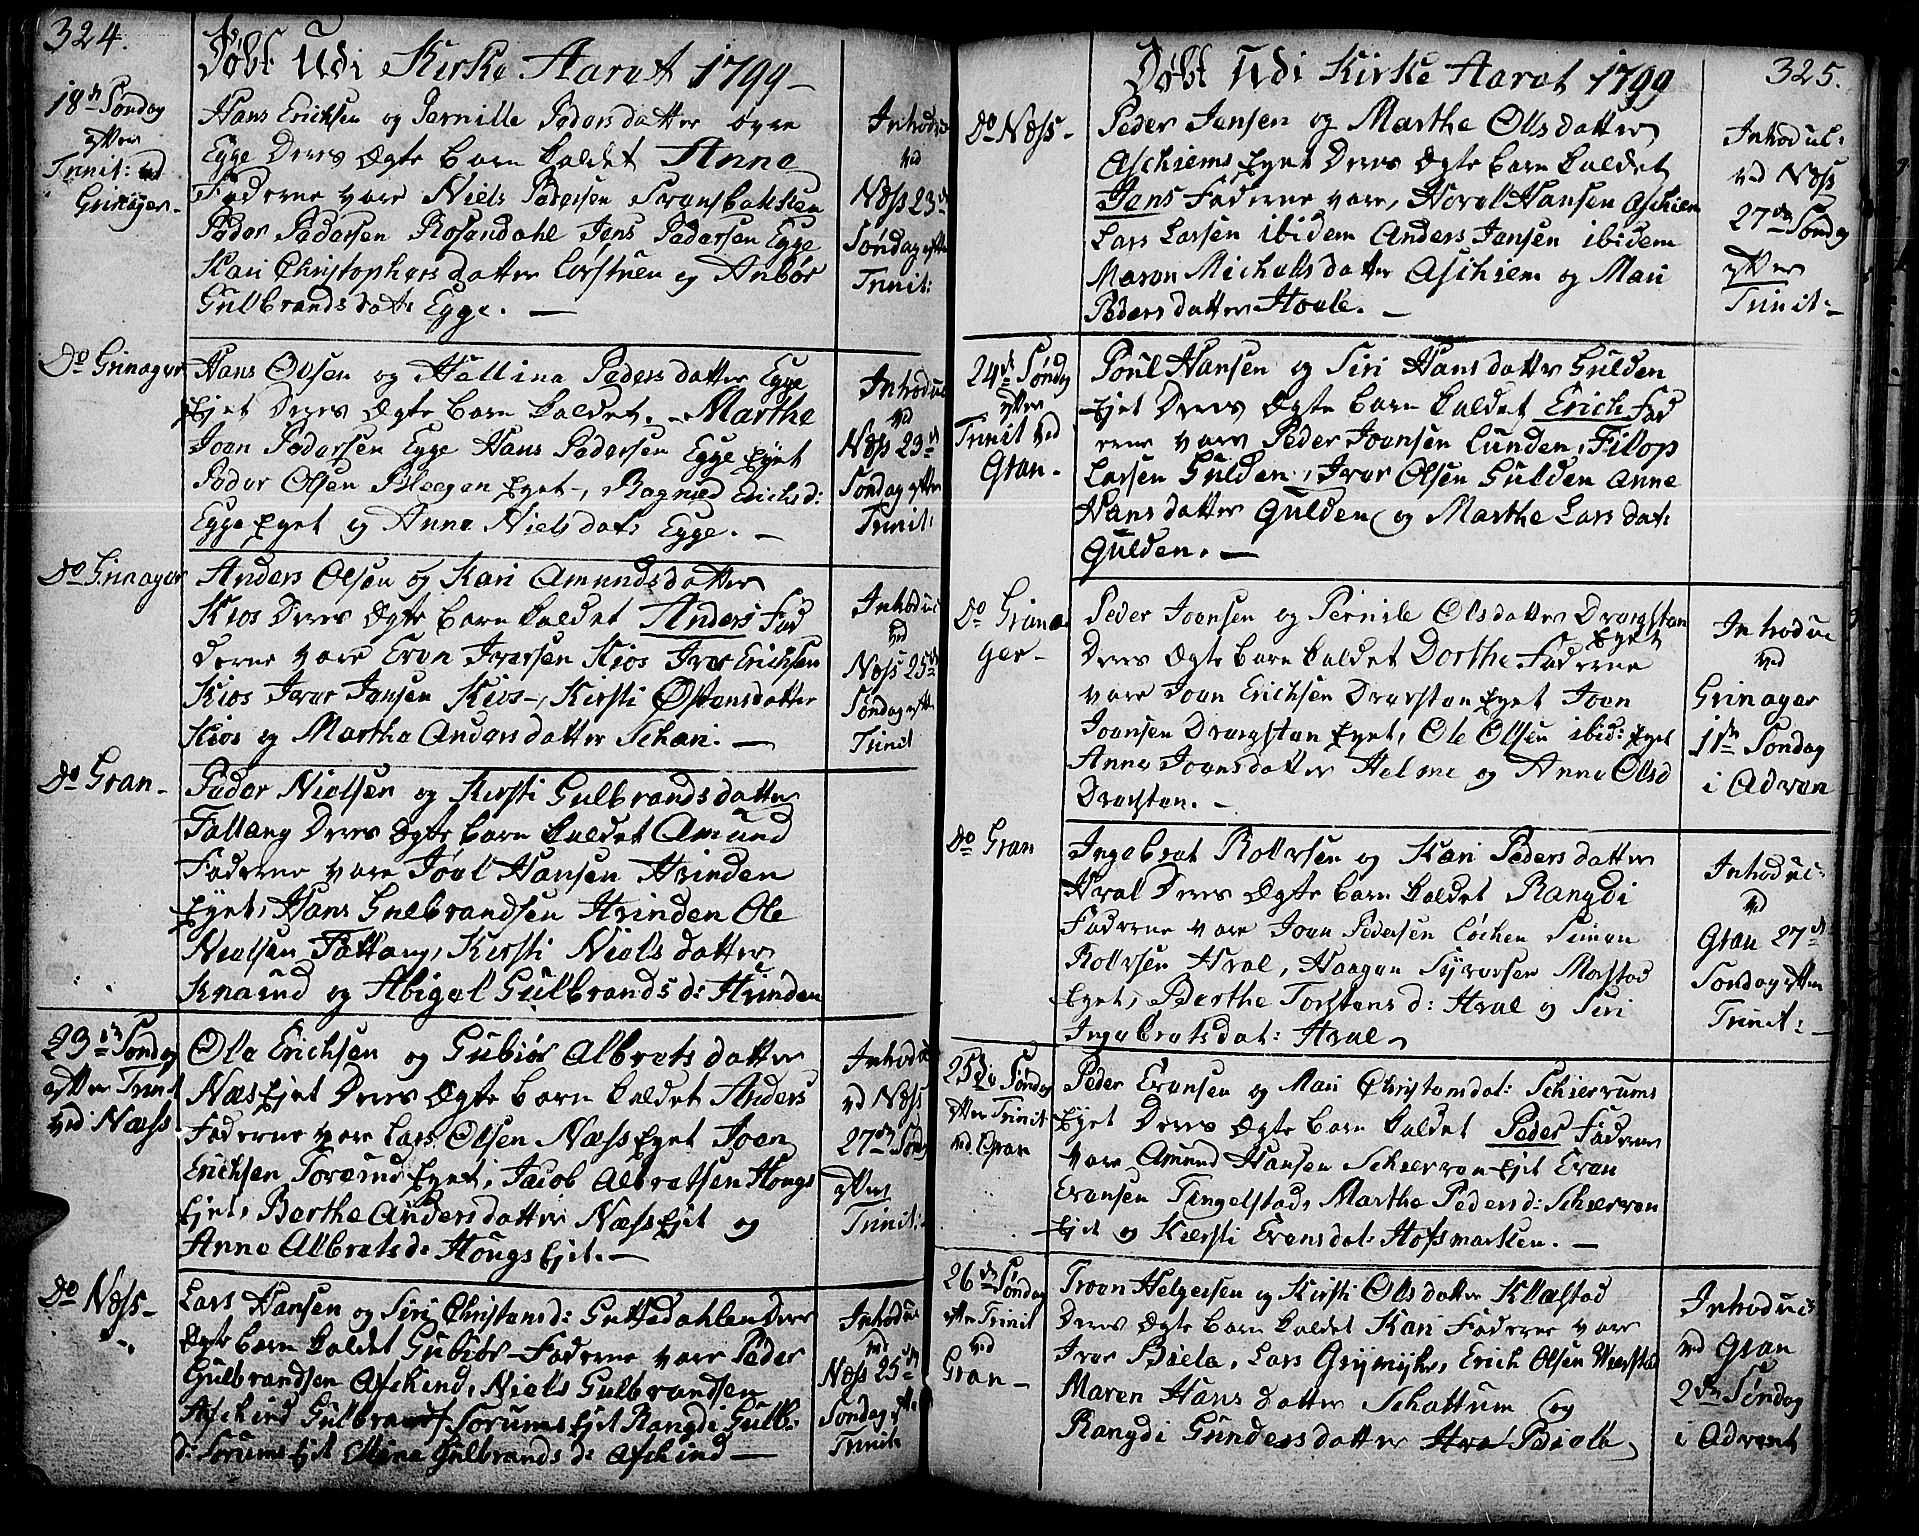 324.
Døbt Udi Kirke Aaret 1799
18de Søndag
efter
Trinit: ved
Grinager
Hans Erichsen og Pernille Pedersdatter øvre
Egge Deres Ægte barn kaldet Anne
Fadderne vare Niels Pedersen
Peder Pedersen Rosendahl Jens Pedersen Egge
Kari Christophersdatter og Anbør
Gulbrandsdatt: Egge.
Introduc
ved
Næss 23de
Søndag efter
Trinit:
Do Grinager
Hans Olsen og Hellina Pedersdatter Egge
Ejet Deres Ægte barn kaldet Marthe
Joen Pedersen Egge Hans Pedersen Egge Eyet
Peder Olsen Bleegen Eyet, Ragnild Erichsd:
Egge Eyet og Anne Nielsdat: Egge.
Introduc
ved
Næss 23de
Søndag efter
Trinit:
Do Grinager
Anders Olsen og Kari Amundsdatter
Kios Deres Ægte barn kaldet Anders Fad
derne vare Even Iversen Kios Iver Erichsen
Kios Iver Jensen Kios, Kirsti Østensdatter
Kios og Marthe Andersdatter Schari.
Introduc
ved
Næss 25de
Søndag efter
Trinit
Do Gran
Peder Nielsen og Kirsti Gulbrandsdatter
Fallang Deres Ægte barn kaldet Amund
Fadderne vare Joel Hansen Hvinden
Eyet, Hans Gulbrandsen Hvinden Ole
Nielsen Fallang, Kirsti Nielsdatter
Knarud og Abigel Gulbrandsd: Hvinden
23de Søndag
efter Trinit
ved Næss
Ole Erichsen og Gubiør Albretsdatter
Næs Ejet Deres Ægte barn kaldet Anders
Fadderne vare Lars Olsen Næss Eyet Joen
Erichsen Eyet, Jacob Albretsen Hougs
Ejet, Berthe Andersdatter Næss Ejet og
Anne Albretsd: Hougs Ejet.
Introduc
ved Næss
27de Sønd
efter
Trinit:
Do Næss
Lars Hansen og Siri Christensd: Guttedahlen Deres
Ægte barn kaldet Gubiør Fadderne vare Peder
Gulbrandsen Aschind, Niels Gulbrandsen
Aschind Gulbrand Sorums Ejet Rangdi Gulb:
d: Sorums Ejet Eline Gulbrandsd: Aschind
Introduc
ved
Næss 25de
Søndag efte
Trinit
325.
Døbt Udi Kirke Aaret 1799
Do Næss
Peder Jensen og Marthe Olsdatter
Aschiems Eyet Deres Ægte barn kaldet
Jens Fadderne vare, Hovel Hansen Aschiem
Lars Larsen ibidem Anders Jensen ibidem
Maren Michelsdatter Aschiem og Mari
Pedersdatter Hvale.
Introduc:
ved Næss
27de Søndag
efter
Trinit:
24de Søndag
efter
Trinit ved
Gran
Poul Hansen og Siri Hansdatter Gulden
Ejet Deres Ægte barn kaldet Erich Fad
derne vare Peder Joensen Lunden, Filop
Larsen Gulden, Iver Olsen Gulden Anne
Hansdatter Gulden og Marthe Larsdat:
Gulden.
Do Grina
ger
Peder Joensen og Pernile Olsdatter Drægstan
Eyet
Deres Ægte barn kaldet Dorthe Fadderne
vare Joen Erichsen Drægstan Eyet Joen
Joensen Drægstan Eyet, Ole Olsen ibid: Eyet
Anne Joensdatter Helme og Anne Olsd
Drægstan.
Introduc
ved
Grinager
1ste Søndag
i Adven
Do Gran
Ingebret Rolvsen og Kari Pedersdatter
Hval Deres Ægte barn kaldet Rangdi
Fadderne vare Joen Pedersen Løchen Simen
Rolvsen Hval, Haagen Syversen Morstad
Eyet, Berthe Torstensd: Hval og Siri
Ingebretsdat: Hval
Introduc:
ved
Gran 27de
Søndag efter
Trinit:
25de Søndag
efter Trinit
ved Gran
Peder Evensen og Mari Christensdat: Schierrums
Eyet Deres Ægte barn kaldet Peder Fadderne
vare Amund Hansen Schierven Ejet Even
Evensen Tingelstad, Marthe Pedersd: Schierven
Ejet og Kiersti Evensdat: Hofsmarken.
26de Søndag
efter Trinit
ved
Gran
Troen Helgersen og Kirsti Olsdatter Klæstad
Deres Ægte barn kaldet Kari Fadderne vare
Iver Biela, Lars Grymyhr, Erich Olsen
Maren Hansdatter Schattum og
Rangdi Gundersdatter Biele
Introduc
ved Gran
2den Søndag
i Advent